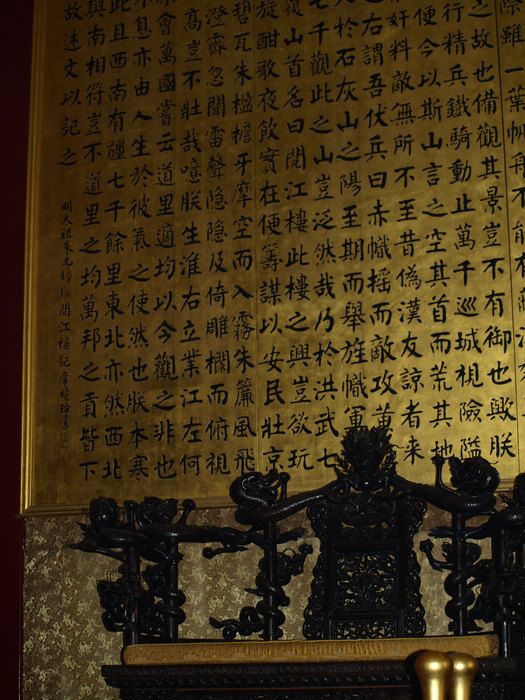 際雖一葉帆舟不能有
之故也備觀其景豈不有御也歟朕
行精兵鐵騎動止萬千巡城視險隘
便今以斯山言之空其首而荒其地
奸料敵無所不至昔偽漢友諒者來
之右謂吾伏兵曰赤幟搖而敵攻黃
於石灰山之陽至期而舉旌幟軍
七千觀此之山豈泛然哉乃於洪武七
山首名曰閱江樓此樓之興豈欲玩
旋酣歌夜飲實在便籌謀以安民壯京
碧瓦朱楹檐牙摩空而入霧朱簾風飛
澄霽忽聞雷聲隱隱及倚雕欄而俯視
高豈不壯哉噫朕生淮右立業江左何
會萬國嘗云道里適均以今觀之非也
不息亦由人生於彼氣之使然也朕本寒
此且西南有疆七千餘里東北亦然西北
與南相符豈不道里之均萬邦之貢皆下
故述文以記之
明太祖朱元璋撰閱江樓記